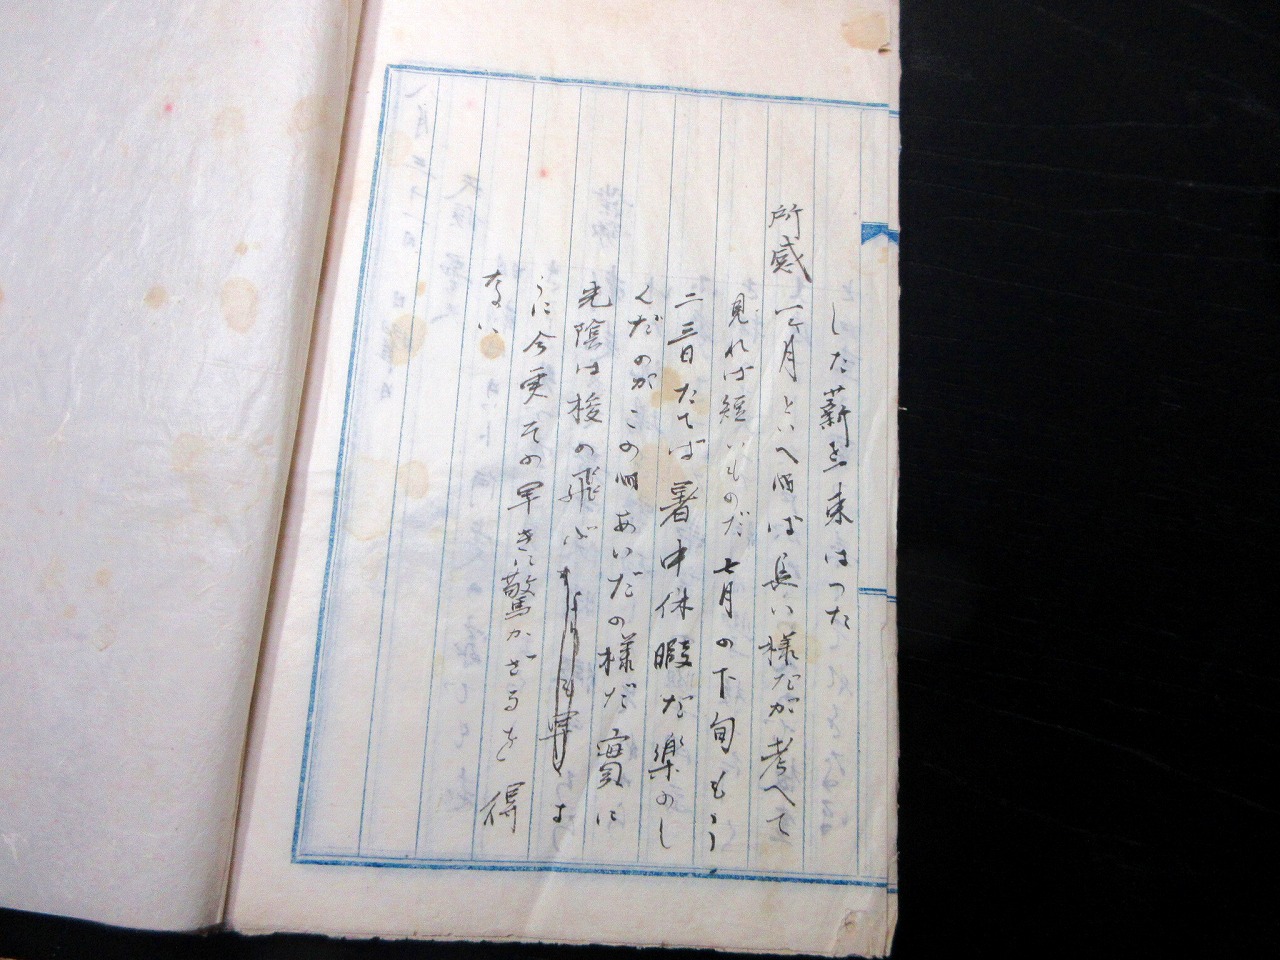 した薪を一束はつた
所感 一ヶ月といへば長い様だが考へて
見れば短いものだ 七月の下旬もう
二三日たてば暑中休暇だ楽のし
んだのがこの間あいだの様だ 實に
光陰は梭の飛ぶ よ
うに今更その早きに驚かざるを得
ない